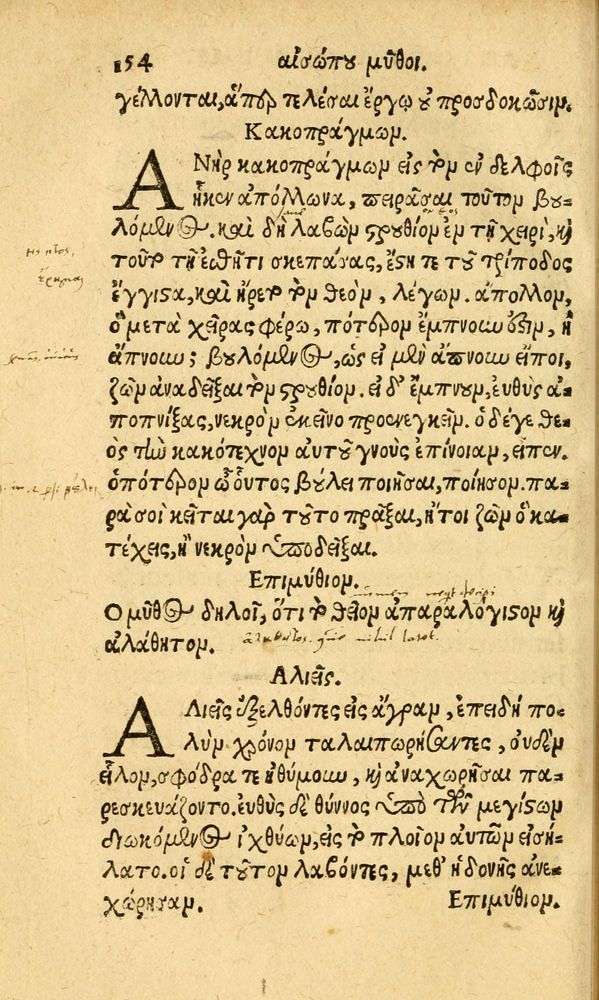 154 αἰσώπου μῦθοι.
γέλλονται, ἅπερ τελέσαι ἔργῳ οὐ προσδοκῶσιν.
Κακοπράγμων.
ΑΝὴρ κακοπράγμων εἰς τὸν ἐν δελφοῖς
ἧκεν ἀπόλλωνα, πειρᾶσαι τοῦτον βου-
λόμενος. καὶ δὴ λαβὼν στρουθίον ἐν τῇ χειρὶ, καὶ
τοῦτο τῇ ἐσθῆτι σκεπάσας, ἔστη τε τοῦ τρίποδος
ἔγγιστα, καὶ ἤρετο τὸν θεὸν, λέγων. ἄπολλον,
ὃ μετὰ χεῖρας φέρω, πότερον ἔμπνουν ἐστὶν, ἢ
ἄπνουν; βουλόμενος, ὡς εἰ μὲν ἄπνουν εἴποι,
ζῶν ἀναδεῖξαι τὸν στρουθίον. εἰ δ' ἔμπνουν, εὐθὺς ἀ-
ποπνίξας, νεκρὸν ἐκεῖνο προενεγκεῖν. ὁ δέ γε θε-
ὸς τὴν κακότεχνον αὐτοῦ γνοὺς ἐπίνοιαν, εἶπεν.
ὁπότερον ὦ οὗτος βούλει ποιῆσαι, ποίησον. πα-
ρὰ σοὶ κεῖται γὰρ τοῦτο πρᾶξαι, ἤτοι ζῶν ὃ κα-
τέχεις, ἢ νεκρὸν ὑποδεῖξαι.
Επιμύθιον.
Ο μῦθος δηλοῖ, ὅτι τὸ θεῖον ἀπαραλόγιστον καὶ
ἀλάθητον.
Αλιεῖς.
ΑΛιεῖς ἐξελθόντες εἰς ἄγραν, ἐπειδὴ πο-
λὺν χρόνον ταλαιπωρήσαντες, οὐδὲν
εἷλον, σφόδρα τε ἠθύμουν, καὶ ἀναχωρῆσαι πα-
ρεσκευάζοντο. εὐθὺς δὲ θύννος ὑπὸ τῶν μεγίστων
διωκόμενος ἰχθύων, εἰς τὸ πλοῖον αὐτῶν εἰσή-
λατο. οἱ δὲ τοῦτον λαβόντες, μεθ' ἡδονῆς ἀνε-
χώρησαν. Επιμύθιον.